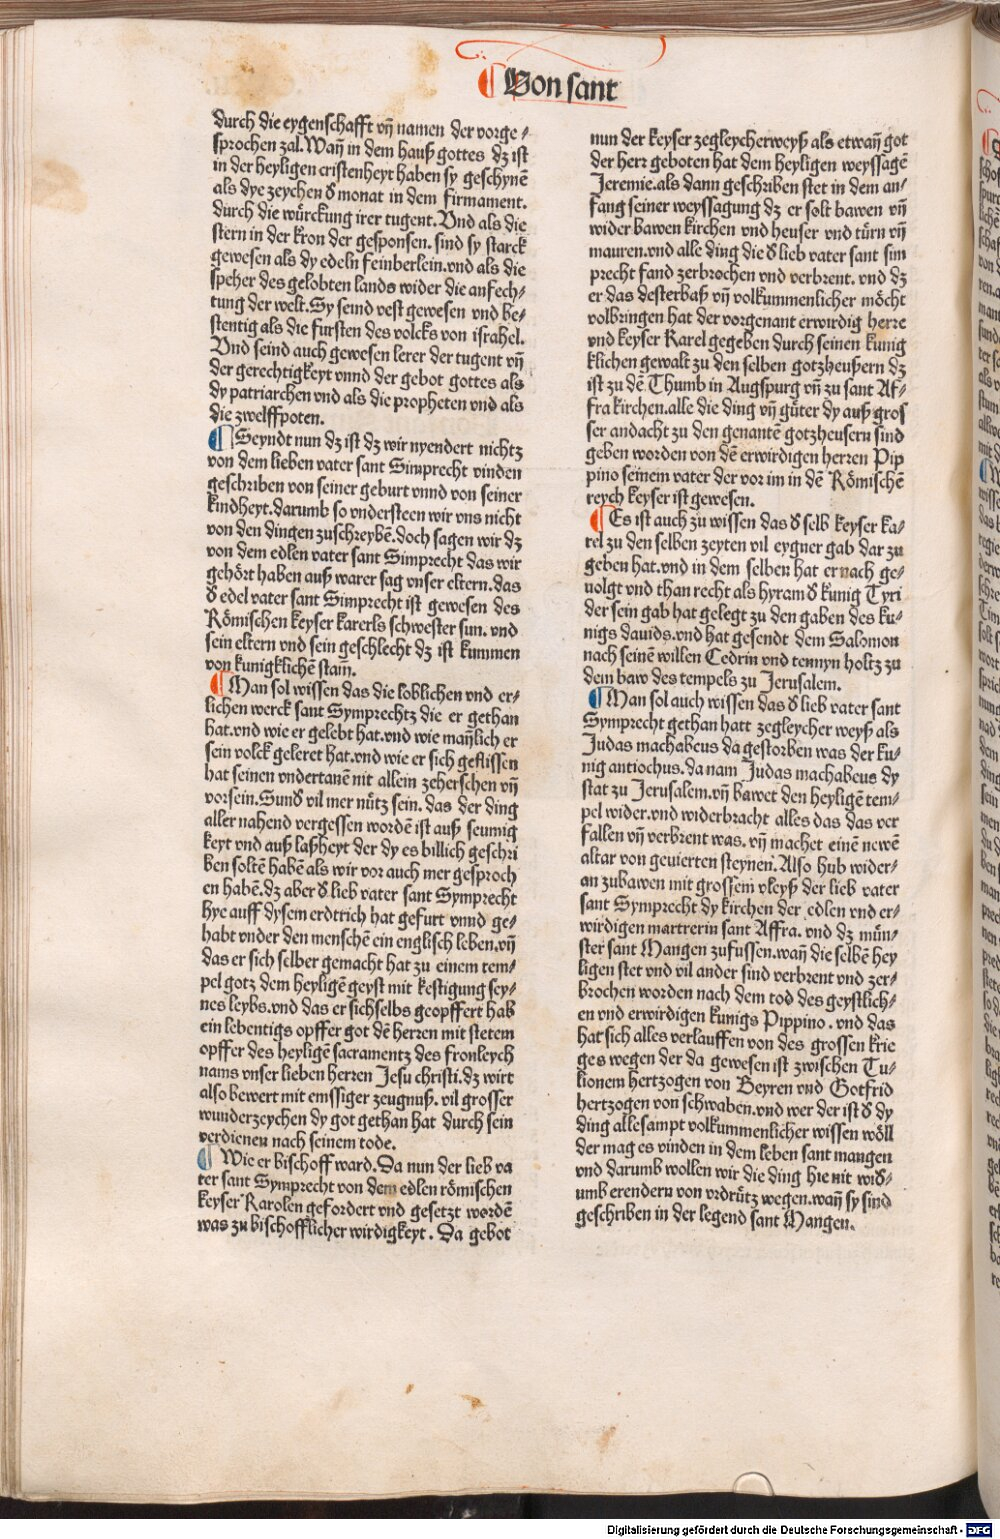 ¶ Von sant
durch die eygenschafft vñ namen der vorge⸗
sprochen zal. Wañ in dem hauß gottes dz ist
in der heyligen cristenheyt haben sy geschynē
als dye zeychen d monat in dem firmament.
durch die würckung irer tugent. Vnd als die
stern in der kron der gesponsen. sind sy starck
gewesen als dy edeln feinberlein. vnd als die
speher des gelobten lands wider die anfech⸗
tung der welt. Sy seind vest gewesen vnd be⸗
stentig als die fursten des volcks von israhel.
Vnd seind auch gewesen lerer der tugent vñ
der gerechtigkeyt vnnd der gebot gottes als
dy patriarchen vnd als die propheten vnd als
die zwelffpoten.
¶ Seyndt nun dz ist dz wir nyendert nichtz
von dem lieben vater sant Simprecht vinden
geschriben von seiner geburt vnnd von seiner
kindheyt. darumb so vndersteen wir vns nicht
von den dingen zuschreybē. doch sagen wir dz
von dem edlen vater sant Simprecht das wir
gehört haben auß warer sag vnser eltern. das
d edel vater sant Simprecht ist gewesen des
Römischen keyser karerls schwester sun. vnd
sein eltern vnd sein geschlecht dz ist kummen
von kunigklichē stam̄.
¶ Man sol wissen das die loblichen vnd er⸗
lichen werck sant Symprechtz die er gethan
hat. vnd wie er gelebt hat. vnd wie mañlich er
sein volck geleret hat. vnd wie er sich geflissen
hat seinen vndertanē nit allein zeherschen vñ
vorsein. Sund vil mer nütz sein. das der ding
aller nahend vergessen wordē ist auß seumig
keyt vnd auß laßheyt der dy es billich geschri
ben soltē habē als wir vor auch mer gesproch
en habē. dz aber d lieb vater sant Symprecht
hye auff dysem erdtrich hat gefurt vnnd ge⸗
habt vnder den menschē ein englisch leben. vñ
das er sich selber gemacht hat zu einem tem⸗
pel gotz dem heyligē geyst mit kestigung sey⸗
nes leybs. vnd das er sichselbs geopffert hab
ein lebentigs opffer got dē herren mit stetem
opffer des heyligē sacramentz des fronleych
nams vnser lieben herren Jesu christi. dz wirt
also bewert mit emssiger zeugnuß. vil grosser
wunderzeychen dy got gethan hat durch sein
verdienen nach seinem tode.
¶ Wie er bischoff ward. Da nun der lieb va
ter sant Symprecht von dem edlen römischen
keyser Karolen gefordert vnd gesetzt wordē
was zu bischofflicher wirdigkeyt. Da gebot
nun der keyser zegleycherweyß als etwañ got
der herr geboten hat dem heyligen weyssagē
Jeremie. als dann geschriben stet in dem an⸗
fang seiner weyssagung dz er solt bawen vñ
wider bawen kirchen vnd heuser vnd türn vñ
mauren. vnd alle ding die d lieb vater sant sim
precht fand zerbrochen vnd verbrent. vnd dz
er das desterbaß vñ volkummenlicher möcht
volbringen hat der vorgenant erwirdig herre
vnd keyser Karel gegeben durch seinen kunig
klichen gewalt zu den selben gotzheußern dz
ist zu dē Thumb in Augspurg vñ zu sant Af⸗
fra kirchen. alle die ding vñ güter dy auß gros
ser andacht zu den genantē gotzheusern sind
geben worden von dē erwirdigen herren Pip
pino seinem vater der vor im in dē Römischē
reych keyser ist gewesen.
¶ Es ist auch zu wissen das d selb keyser ka⸗
rel zu den selben zeyten vil eygner gab dar zu
geben hat. vnd in dem selben hat er nach ge⸗
uolgt vnd than recht als hyram d kunig Tyri
der sein gab hat gelegt zu den gaben des ku⸗
nigs dauids. vnd hat gesendt dem Salomon
nach seinē willen Cedrin vnd tennyn holtz zu
dem baw des tempels zu Jerusalem.
¶ Man sol auch wissen das d lieb vater sant
Symprecht gethan hatt zegleycher weyß als
Judas machabeus da gestorben was der ku⸗
nig antiochus. da nam Judas machabeus dy
stat zu Jerusalem. vñ bawet den heyligē tem⸗
pel wider. vnd widerbracht alles das das ver
fallen vñ verbrent was. vñ machet einē newē
altar von geuierten steynen. Also hub wider⸗
an zubawen mit grossem vleyß der lieb vater
sant Symprecht dy kirchen der edlen vnd er⸗
wirdigen martrerin sant Affra. vnd dz mün⸗
ster sant Mangen zufussen. wañ die selbē hey
ligen stet vnd vil ander sind verbrent vnd zer⸗
brochen worden nach dem tod des geystlich⸗
en vnd erwirdigen kunigs Pippino. vnd das
hat sich alles verlauffen von des grossen krie
ges wegen der da gewesen ist zwischen Tu⸗
kionem hertzogen von Beyren vnd Gotfrid
hertzogen von schwaben. vnd wer der ist d dy
ding allesampt volkummenlicher wissen wöll
der mag es vinden in dem leben sant mangen
vnd darumb wollen wir die ding hie nit wid⸗
umb erendern von vrdrütz wegen. wañ sy sind
geschriben in der legend sant Mangen.
Digitalisierung gefördert durch die Deutsche Forschungsgemeinschaft - DFG